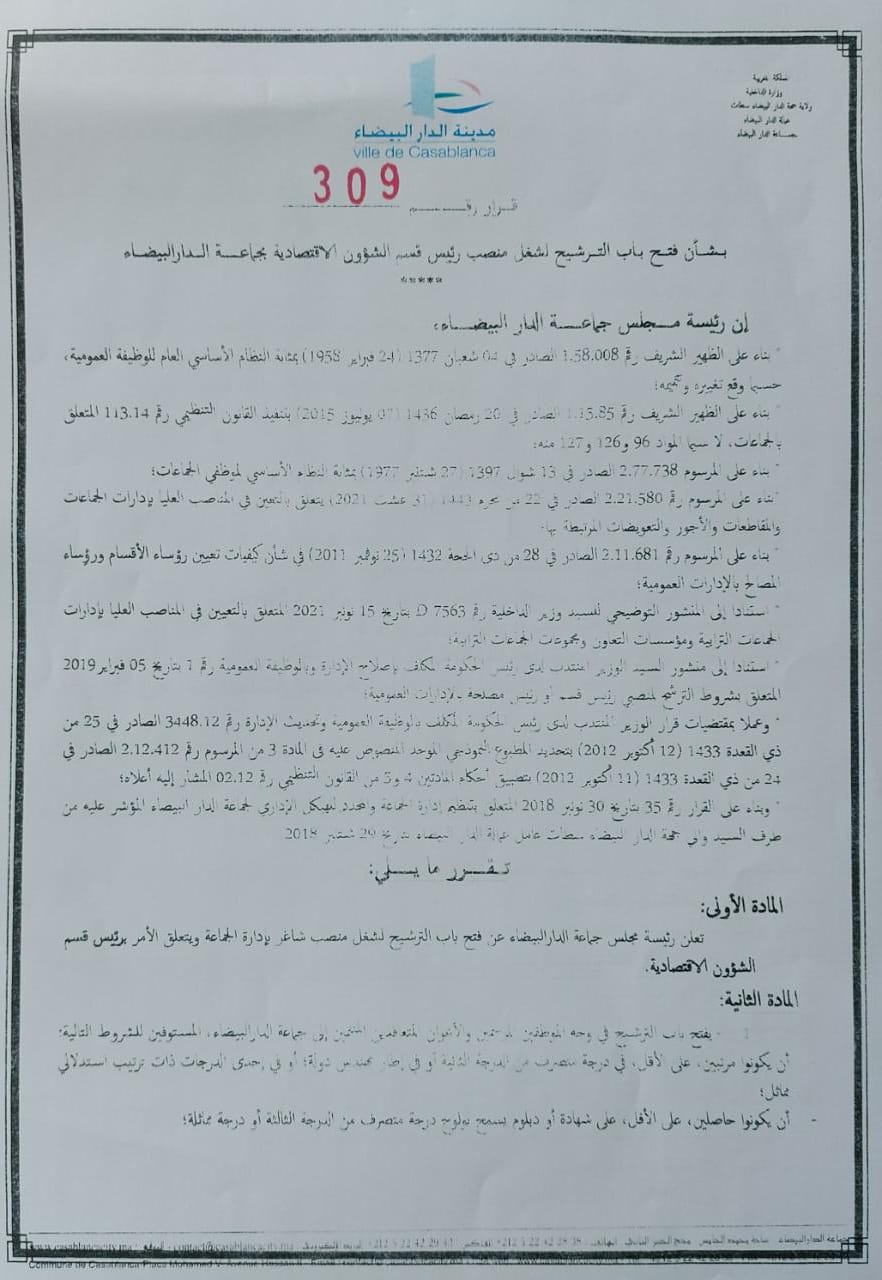 المملكة المغربية
وزارة الداخلية
ولاية جهة الدار البيضاء سطات
عمالة الدار البيضاء
جماعة الدار البيضاء
مدينة الدار البيضاء
ville de Casablanca
قرار رقم 309
بشأن فتح باب الترشيح لشغل منصب رئيس قسم الشؤون الاقتصادية بجماعة الدارالبيضاء
*****
إن رئيسة مجلس جماعة الدار البيضاء،
* بناء على الظهير الشريف رقم 1.58.008 الصادر في 04 شعبان 1377 (24 فبراير 1958) بمثابة النظام الأساسي العام للوظيفة العمومية،
حسبما وقع تغييره وتتميمه؛
* بناء على الظهير الشريف رقم 1.15.85 الصادر في 20 رمضان 1436 (07 يوليوز 2015) بتنفيذ القانون التنظيمي رقم 113.14 المتعلق
بالجماعات، لا سيما المواد 96 و126 و127 منه؛
* بناء على المرسوم رقم 2.77.738 الصادر في 13 شوال 1397 (27 شتنبر 1977) بمثابة النظام الأساسي لموظفي الجماعات؛
* بناء على المرسوم رقم 2.21.580 الصادر في 22 من محرم 1443 (31 غشت 2021) يتعلق بالتعيين في المناصب العليا بإدارات الجماعات
والمقاطعات والأجور والتعويضات المرتبطة بها؛
* بناء على المرسوم رقم 2.11.681 الصادر في 28 من ذي الحجة 1432 (25 نوفمبر 2011) في شأن كيفيات تعيين رؤساء الأقسام ورؤساء
المصالح بالإدارات العمومية؛
* استنادا إلى المنشور التوضيحي للسيد وزير الداخلية رقم D 7563 بتاريخ 15 نونبر 2021 المتعلق بالتعيين في المناصب العليا بإدارات
الجماعات الترابية ومؤسسات التعاون ومجموعات الجماعات الترابية؛
* استنادا إلى منشور السيد الوزير المنتدب لدى رئيس الحكومة المكلف بإصلاح الإدارة وبالوظيفة العمومية رقم 1 بتاريخ 05 فبراير 2019
المتعلق بشروط الترشح لمنصبي رئيس قسم أو رئيس مصلحة بالإدارات العمومية؛
* وعملا بمقتضيات قرار الوزير المنتدب لدى رئيس الحكومة المكلف بالوظيفة العمومية وتحديث الإدارة رقم 3448.12 الصادر في 25 من
ذي القعدة 1433 (12 أكتوبر 2012) بتحديد المطبوع النموذجي الموحد المنصوص عليه في المادة 3 من المرسوم رقم 2.12.412 الصادر في
24 من ذي القعدة 1433 (11 أكتوبر 2012) بتطبيق أحكام المادتين 4 و5 من القانون التنظيمي رقم 02.12 المشار إليه أعلاه؛
* وبناء على القرار رقم 35 بتاريخ 30 نونبر 2018 المتعلق بتنظيم إدارة الجماعة والمحدد للهيكل الإداري لجماعة الدار البيضاء المؤشر عليه من
طرف السيد والي جهة الدار البيضاء سطات عامل عمالة الدار البيضاء بتاريخ 29 شتنبر 2018
تقرر ما يلي:
المادة الأولى:
تعلن رئيسة مجلس جماعة الدارالبيضاء عن فتح باب الترشيح لشغل منصب شاغر بإدارة الجماعة ويتعلق الأمر برئيس قسم
الشؤون الاقتصادية.
المادة الثانية:
1 - يفتح باب الترشيح في وجه الموظفين المرسمين والأعوان المتعاقدين المنتمين إلى جماعة الدارالبيضاء، المستوفين للشروط التالية:
أن يكونوا مرتبين، على الأقل، في درجة متصرف من الدرجة الثانية أو في إطار مهندس دولة؛ أو في إحدى الدرجات ذات ترتيب استدلالي
مماثل؛
- أن يكونوا حاصلين، على الأقل، على شهادة أو دبلوم يسمح بولوج درجة متصرف من الدرجة الثالثة أو درجة مماثلة؛